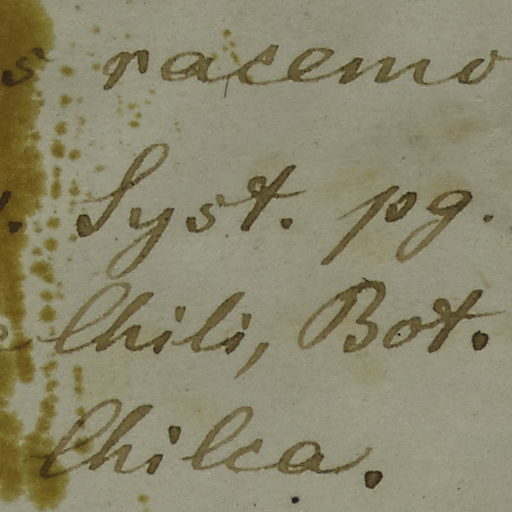 s racemo
. Syst. pg.
Chili, Bot.
Chilca.